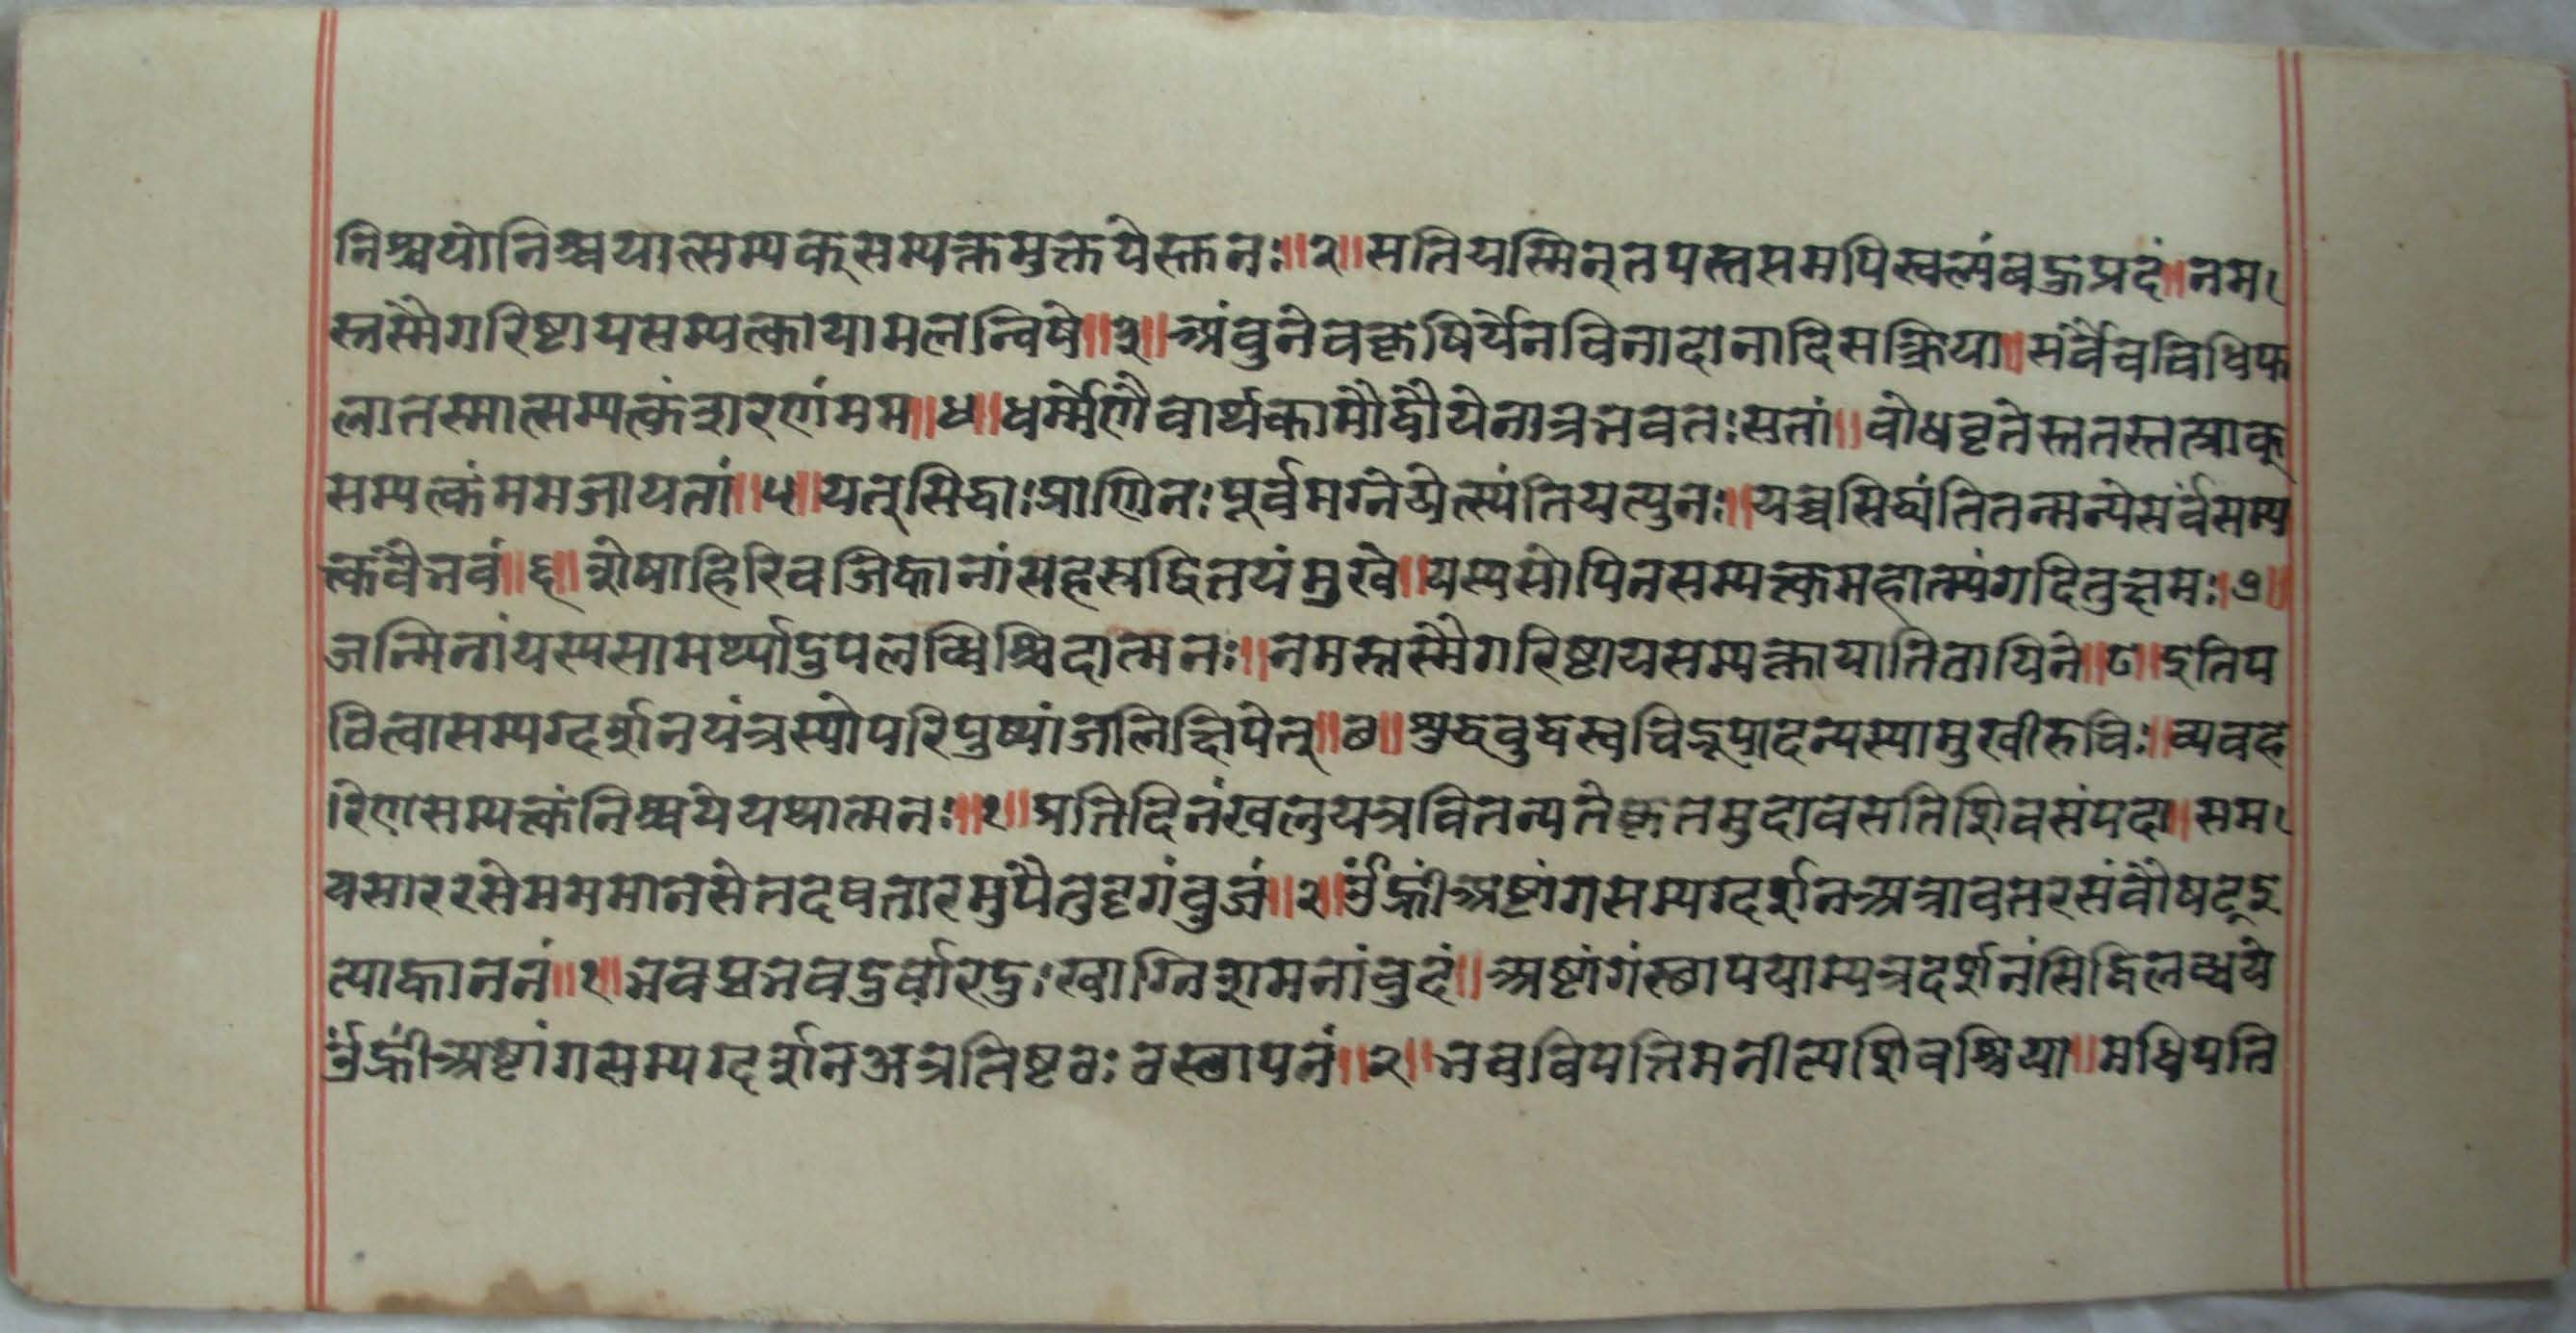 निश्चयोनिश्चयात्सम्यक्सम्यक्तमुक्तयेस्तनः॥२॥सतियस्मिन्तपस्तसमपिस्वल्पंबहुप्रदं॥नम
स्तस्मैगरिष्टायसम्यत्कायामलत्विषे॥३॥अंबुनेवकृषिर्येनविनादानादिसत्क्रिया॥सर्वैवविधिफ
लातस्मात्सम्यत्कंशरणंमम॥४॥धर्म्मेणैवार्थकामौद्वौयेनात्रभवतःसतां॥बोधवृतेस्ततस्तत्प्राक्
सम्यत्कंममजायतां॥५॥यत्सिद्धाःप्राणिनःपूर्वमग्नेयेत्स्यंतियत्पुनः॥यच्चसिद्ध्यंतितन्मन्येसर्वंसम्य
त्कंवैभवं॥६॥शेषाहिरिवजिह्वानांसहस्रद्वितयंमुखे॥यस्यसोपिनसम्यत्कमहात्म्यंगदितुक्षमः॥७॥
जन्मिनांयस्यसामर्थ्यादुपलब्धिश्चिदात्मनः॥नमस्तस्मैगरिष्टायसम्यक्तायातितायिने॥८॥इतिप
वित्वासम्यग्दर्शनयंत्रस्योपरिपुष्पांजलिक्षिपेत्॥छ॥शुद्धबुद्धस्वचिद्रूपादन्यस्यामुखीरुचिः॥व्यवह
रेणसम्यत्कंनिश्चयेयथात्मनः॥१॥प्रतिदिनंखलुयत्रवितन्यतेकृतमुदावसतिशिवसंपदा॥सम
वसाररसेमममानसेतदवतारमुपैतुदृगंबुजं॥२॥ॐह्रींअष्टांगसम्यग्दर्शनअत्रावतरसंवौषट्इ
त्याह्वाननं॥१॥भवप्रभवदुर्वारदुःखाग्निशमनांबुदं॥अष्टांगंस्थापयाम्यत्रदर्शनंसिद्धिलब्धये
ॐह्रींअष्टांगसम्यग्दर्शनअत्रतिष्टठःठस्थापनं॥२॥भवविपत्तिमनीत्यशिवश्रिया॥मधिपति